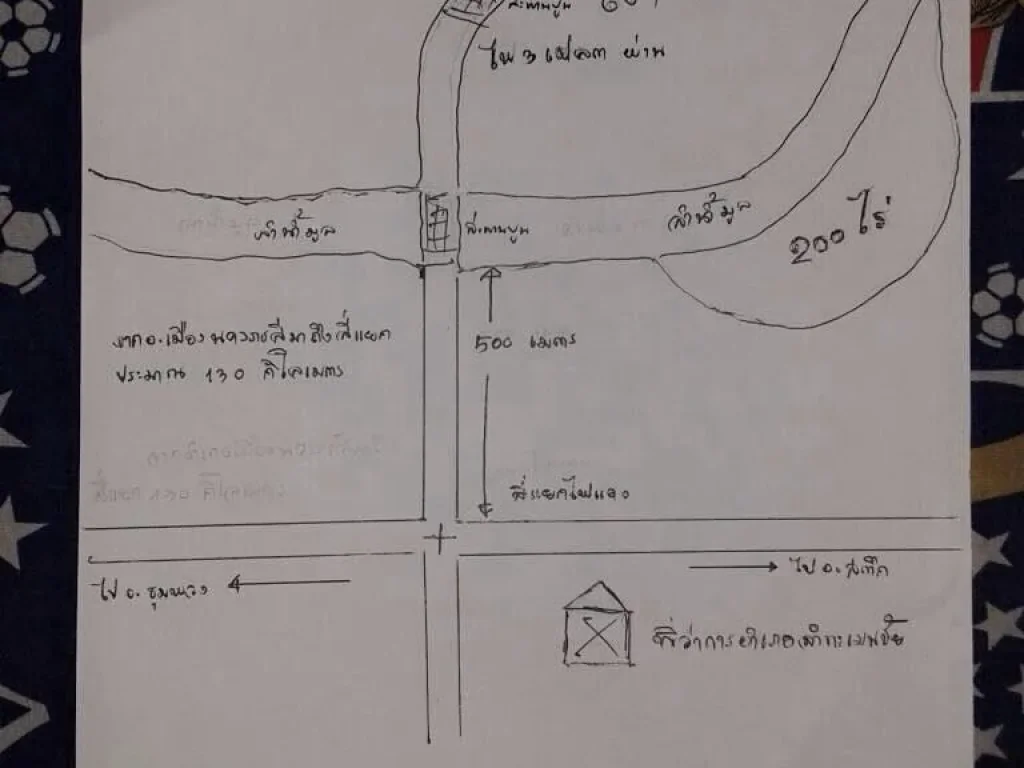 สะพานปูน
ไฟ 3 เฟส ผ่าน
ลำน้ำมูล
สะพานปูน
ลำน้ำมูล
200 ไร่
จาก อ.เมืองนครราชสีมาถึงสี่แยก
ประมาณ 130 กิโลเมตร
500 เมตร
สี่แยกไฟแดง
ไป อ.ชุมพวง
ไป อ.สตึก
ที่ว่าการอำเภอลำทะเมนชัย